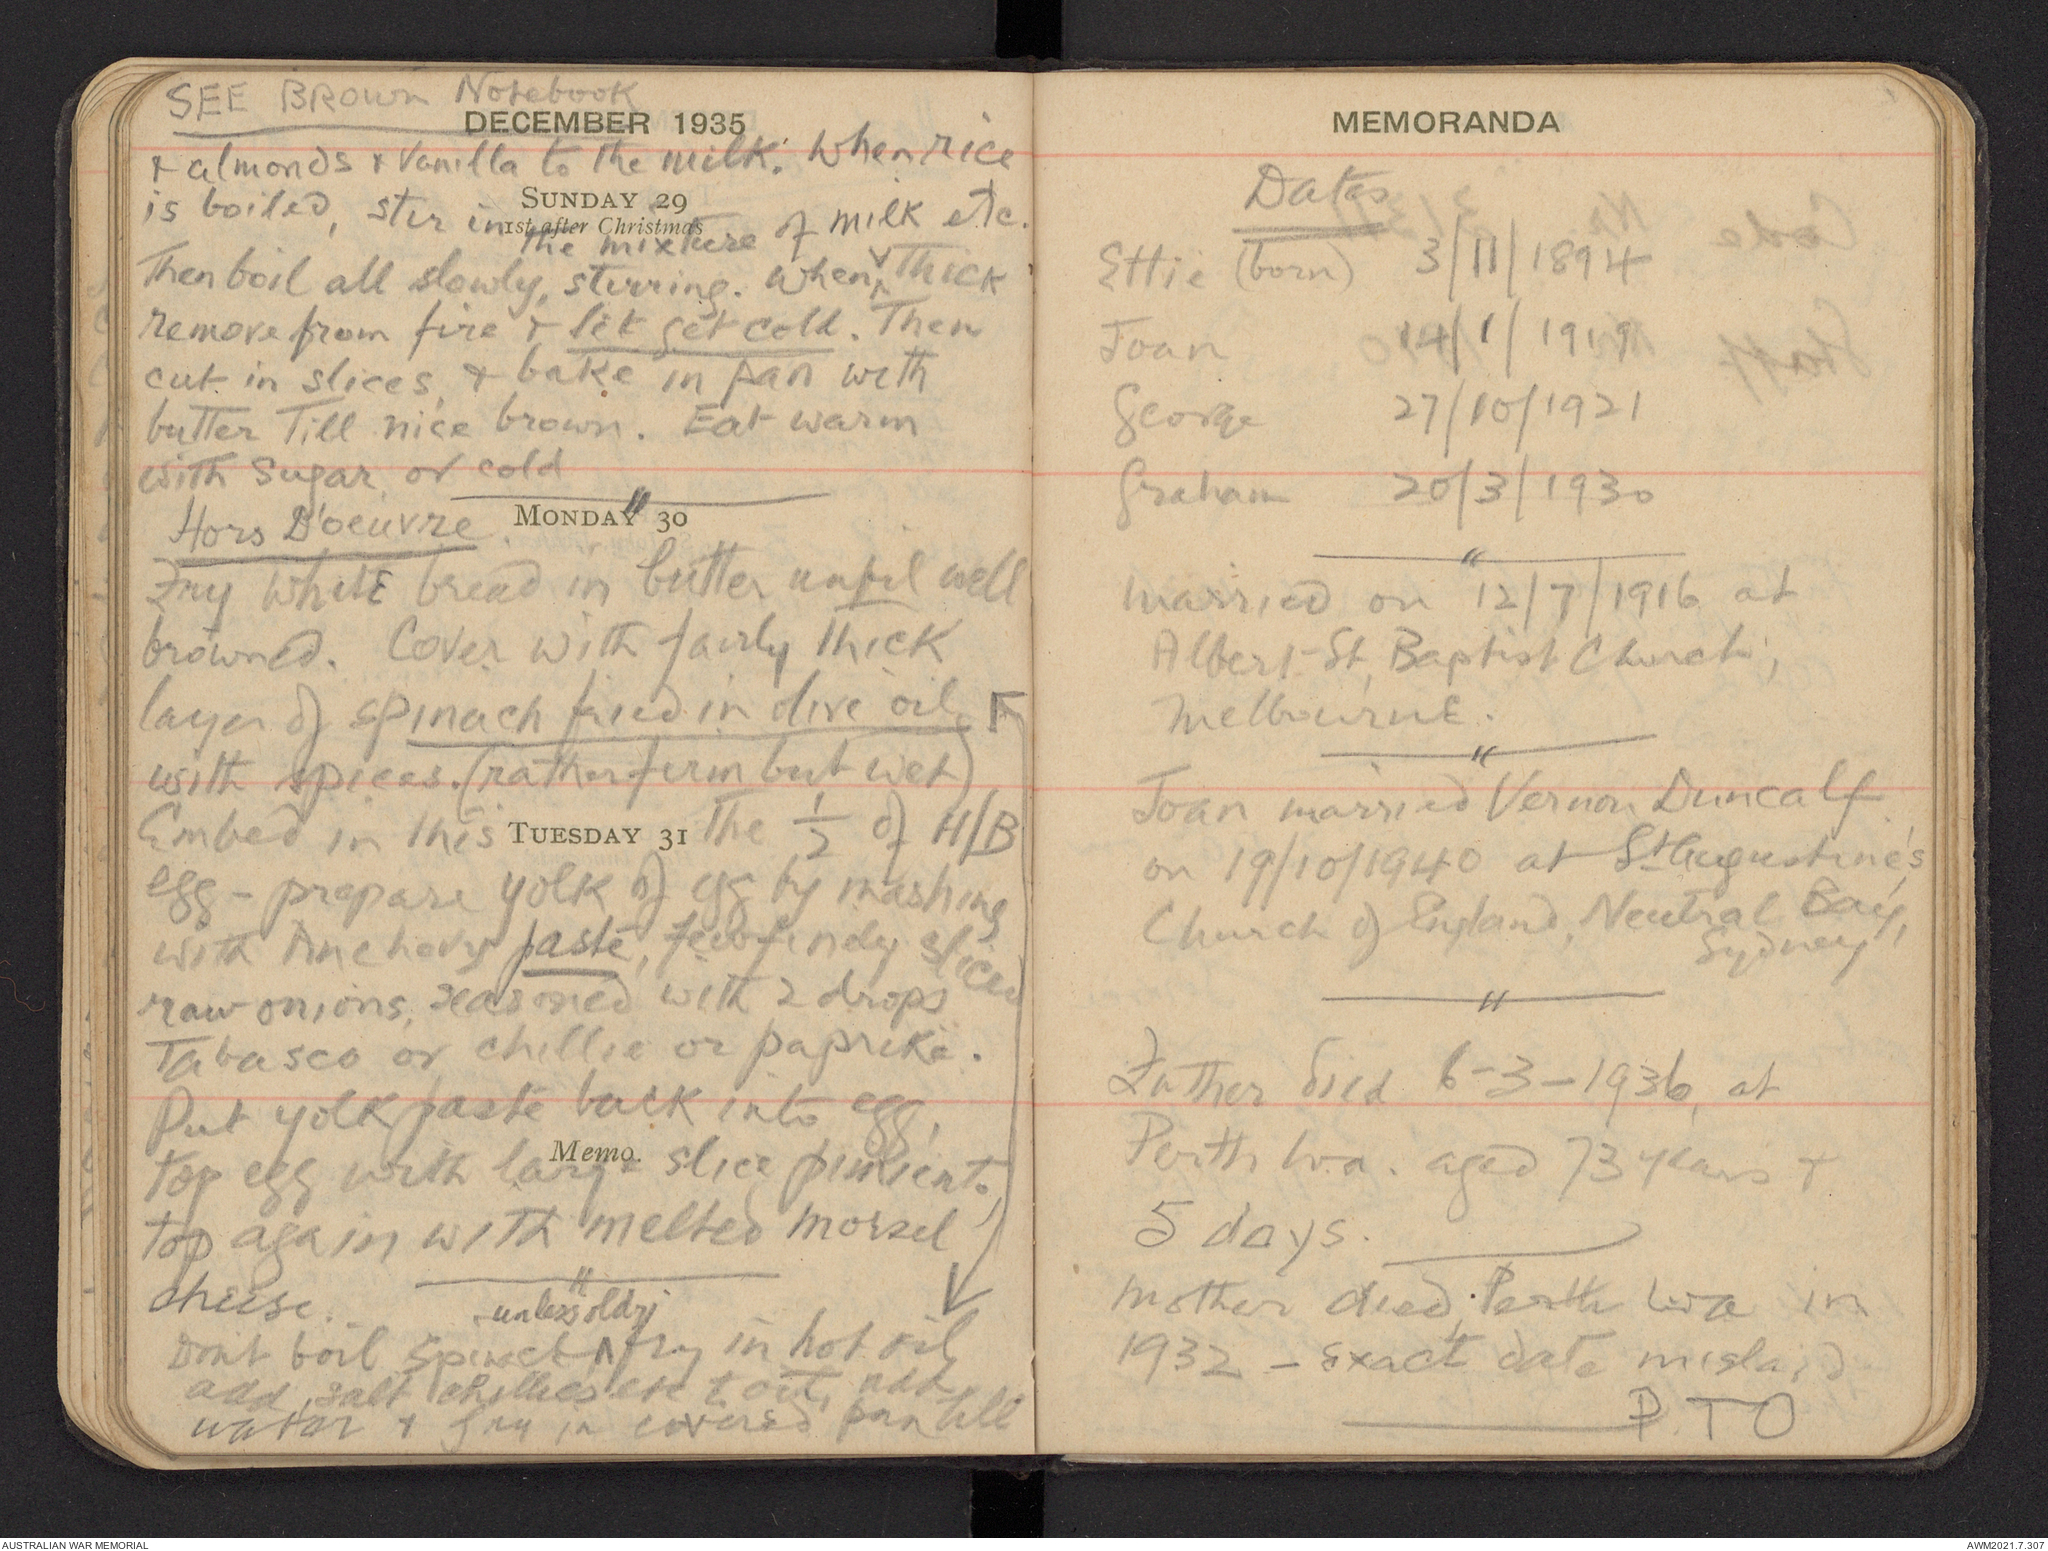 SEE BROWN Notebook
DECEMBER 1935
+ almonds + Vanilla to the milk. When rice
SUNDAY 29
is boiled, stir in the mixture of milk etc.
1st after Christmas
Then boil all slowly, stirring. When thick
remove from fire + let get cold. Then
cut in slices, + bake in pan with
butter Till nice brown. Eat warm
with sugar, or cold
MONDAY 30
Hors D'oeuvre.
Fry white bread in butter until well
browned. Cover with fairly thick
layer of spinach fried in olive oil
with spices. (rather firm but wet)
Embed in this the 1/2 of H/B
TUESDAY 31
egg - prepare yolk of egg by mashing
with Anchovy paste, few finely sliced
raw onions, seasoned with 2 drops
Tabasco or chillie or paprike.
Put yolk paste back into egg,
Memo.
top egg with large slice pimiento,
top again with melted morsel
cheese.
unless oldrj
Dont boil spinach ^ fry in hot oil
add salt chillies etc to oil, add
water + fry in covered pan till
MEMORANDA
Dates
Ettie (born) 3/11/1894
Joan 14/1/1919
George 27/10/1921
Graham 20/3/1930
married on 12/7/1916 at
Albert St, Baptist Church,
Melbourne.
Joan married Vernon Duncalf
on 19/10/1940 at St Augustine's
Church of England, Neutral Bay,
Sydney
Father died 6-3-1936, at
Perth W.A. aged 73 years +
5 days.
Mother died, Perth W A in
1932 - exact date mislaid
P.T O
AUSTRALIAN WAR MEMORIAL
AWM2021.7.307